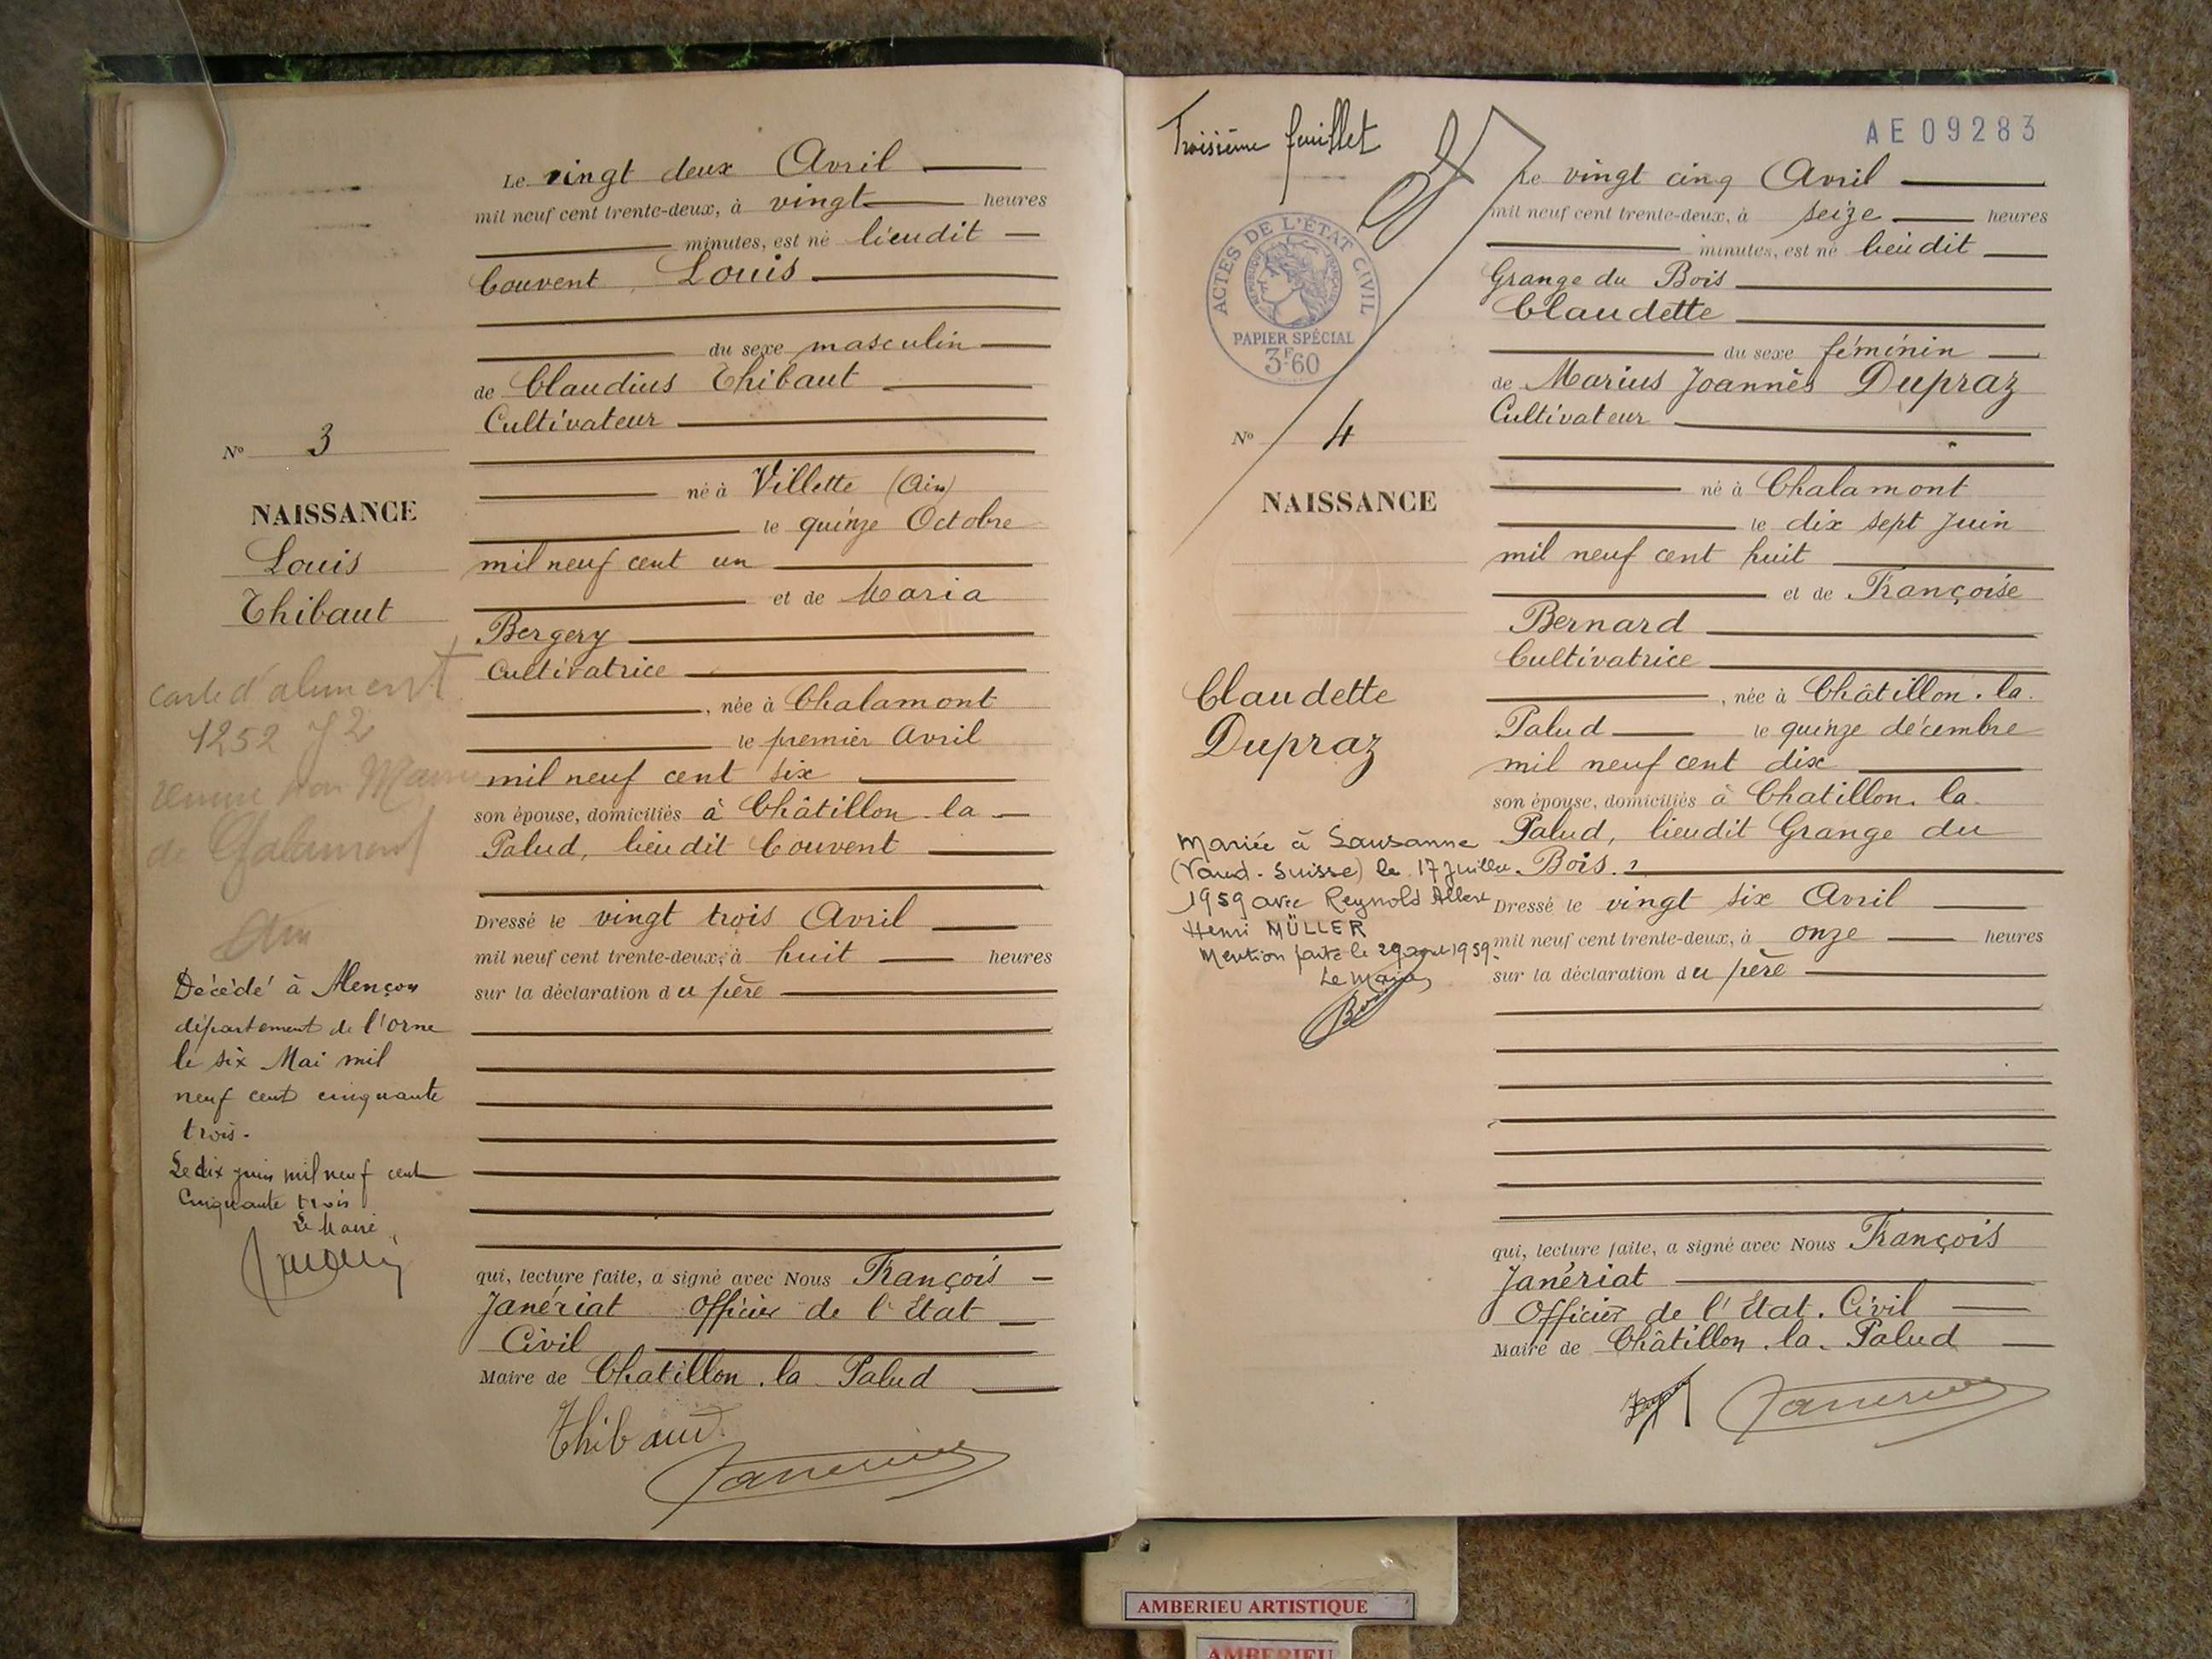 Le vingt deux Avril
mil neuf cent trente-deux, à vingt heures
minutes, est né lieudit
Couvent, Louis
du sexe masculin
de Claudius Thibaut
Cultivateur
né à Villette (Ain)
le quinze Octobre
mil neuf cent un
et de Maria
Bergery
Cultivatrice
, née à Chalamont
le premier Avril
mil neuf cent six
son épouse, domiciliés à Châtillon la
Palud, lieudit Couvent
Dressé le vingt trois Avril
mil neuf cent trente-deux, à huit heures
sur la déclaration du père
qui, lecture faite, a signé avec Nous François
Janériat Officier de l'Etat
Civil
Maire de Chatillon. la. Palud
Thibaud
No 3
NAISSANCE
Louis
Thibaut
carte d'aliment
1252 J2
de Chalamont
Ain
Décédé à Alençon
département de l'orne
le six Mai mil
neuf cent cinquante
trois.
Le dix juin mil neuf cent
Cinquante trois
Le Maire
Troisième feuillet
AE09283
ACTES DE L'ÉTAT CIVIL
RÉPUBLIQUE FRANÇAISE
PAPIER SPÉCIAL
3F60
Le vingt cinq Avril
mil neuf cent trente-deux, à seize heures
minutes, est né lieudit
Grange du Bois
Claudette
du sexe féminin
de Marius Joannès Dupraz
Cultivateur
né à Chalamont
le dix sept Juin
mil neuf cent huit
et de Françoise
Bernard
Cultivatrice
, née à Châtillon. la.
Palud le quinze décembre
mil neuf cent dix
son épouse, domiciliés à Chatillon. la.
Palud, lieudit Grange du
Bois.
Dressé le vingt six Avril
mil neuf cent trente-deux, à onze heures
sur la déclaration du père
qui, lecture faite, a signé avec Nous François
Janériat
Officier de l'Etat. Civil
Maire de Châtillon. la. Palud
No 4
NAISSANCE
Claudette
Dupraz
Mariée à Lausanne
(Vaud. Suisse) le 17 Juillet
1959 avec Reynold Albert
Henri MÜLLER
Mention faite le 29 août 1959.
Le Maire,
AMBERIEU ARTISTIQUE
AMBERIEU